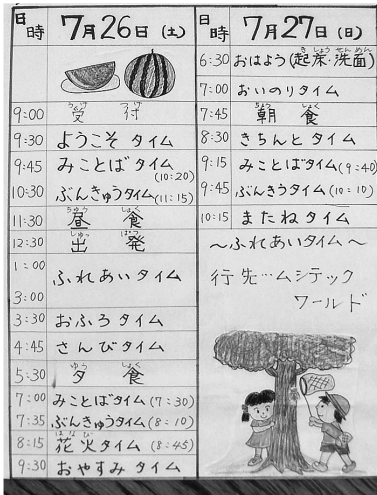 日時 7月26日(土)
9:00 受付 うけつけ
9:30 ようこそ タイム
9:45 みことば タイム (10:20)
10:30 ぶんきゅうタイム (11:15)
11:30 昼食 ちゅうしょく
12:30 出発 しゅっぱつ
1:00 3:00 ふれあいタイム
3:30 おふろ タイム
4:45 さんび タイム
5:30 夕食 ゆうしょく
7:00 みことばタイム (7:30)
7:35 ぶんきゅうタイム (8:10)
8:15 花火タイム はなび (8:45)
9:30 おやすみ タイム
日時 7月27日(日)
6:30 おはよう(起床・洗面) きしょう せんめん
7:00 おいのりタイム
7:45 朝食 ちょうしょく
8:30 きちんと タイム
9:15 みことばタイム (9:40)
9:45 ぶんきうタイム (10:10)
10:15 またね タイム
〜ふれあいタイム〜
行先…ムシテック
ワールド